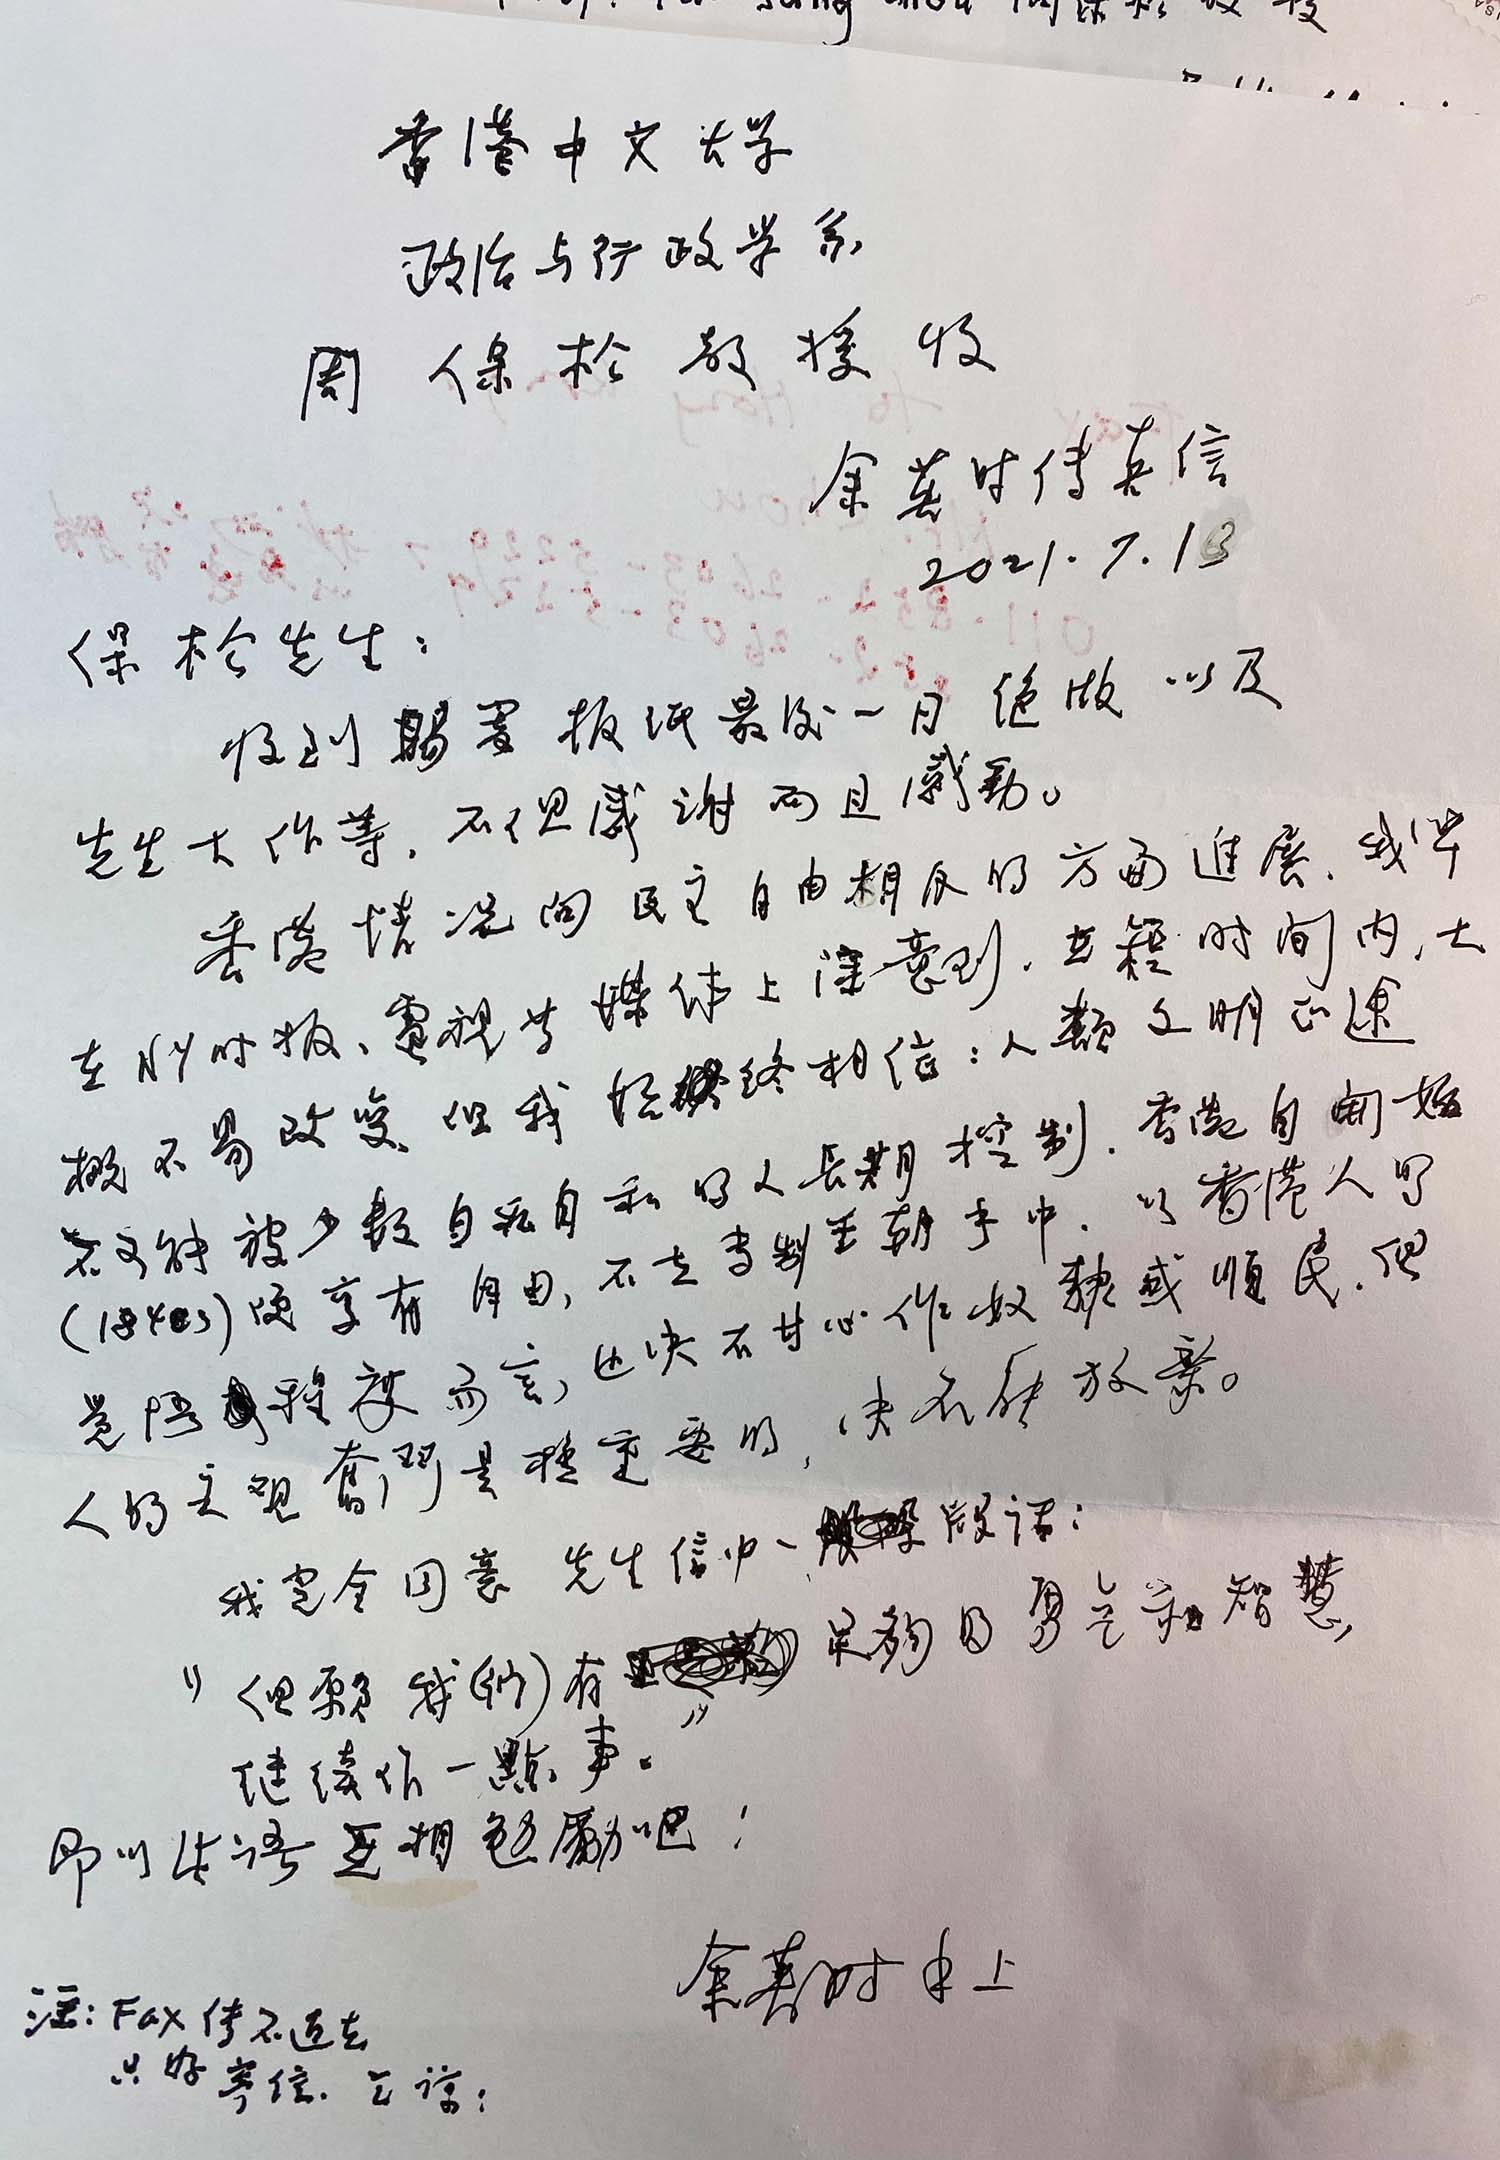 香港中文大学
政治与行政学系
周保松教授收
余英时传真信
2021.7.13
保松先生：
收到賜寄报纸最後一日絶版以及
先生大作等，不但感谢而且感動。
香港情况向民主自由相反的方面進展，我早
在NY时报、電視等媒体上注意到，在短时间内，大
概不易改变，但我始终相信：人類文明正途
不可能被少数自私自利的人長期控制，香港自開始
(1840s)便享有自由，不在専制王朝手中，以香港人的
覚悟程度而言，也决不甘心作奴隸或順民，但
人的主观奮鬥是极重要的，决不能放棄。
我完全同意先生信中一段话：
"但愿我(们)有足夠的勇气和智慧，
继续作一點事。"
即以此语互相勉勵吧！
余英时手上
注：Fax传不过去
只好寄信，乞谅：